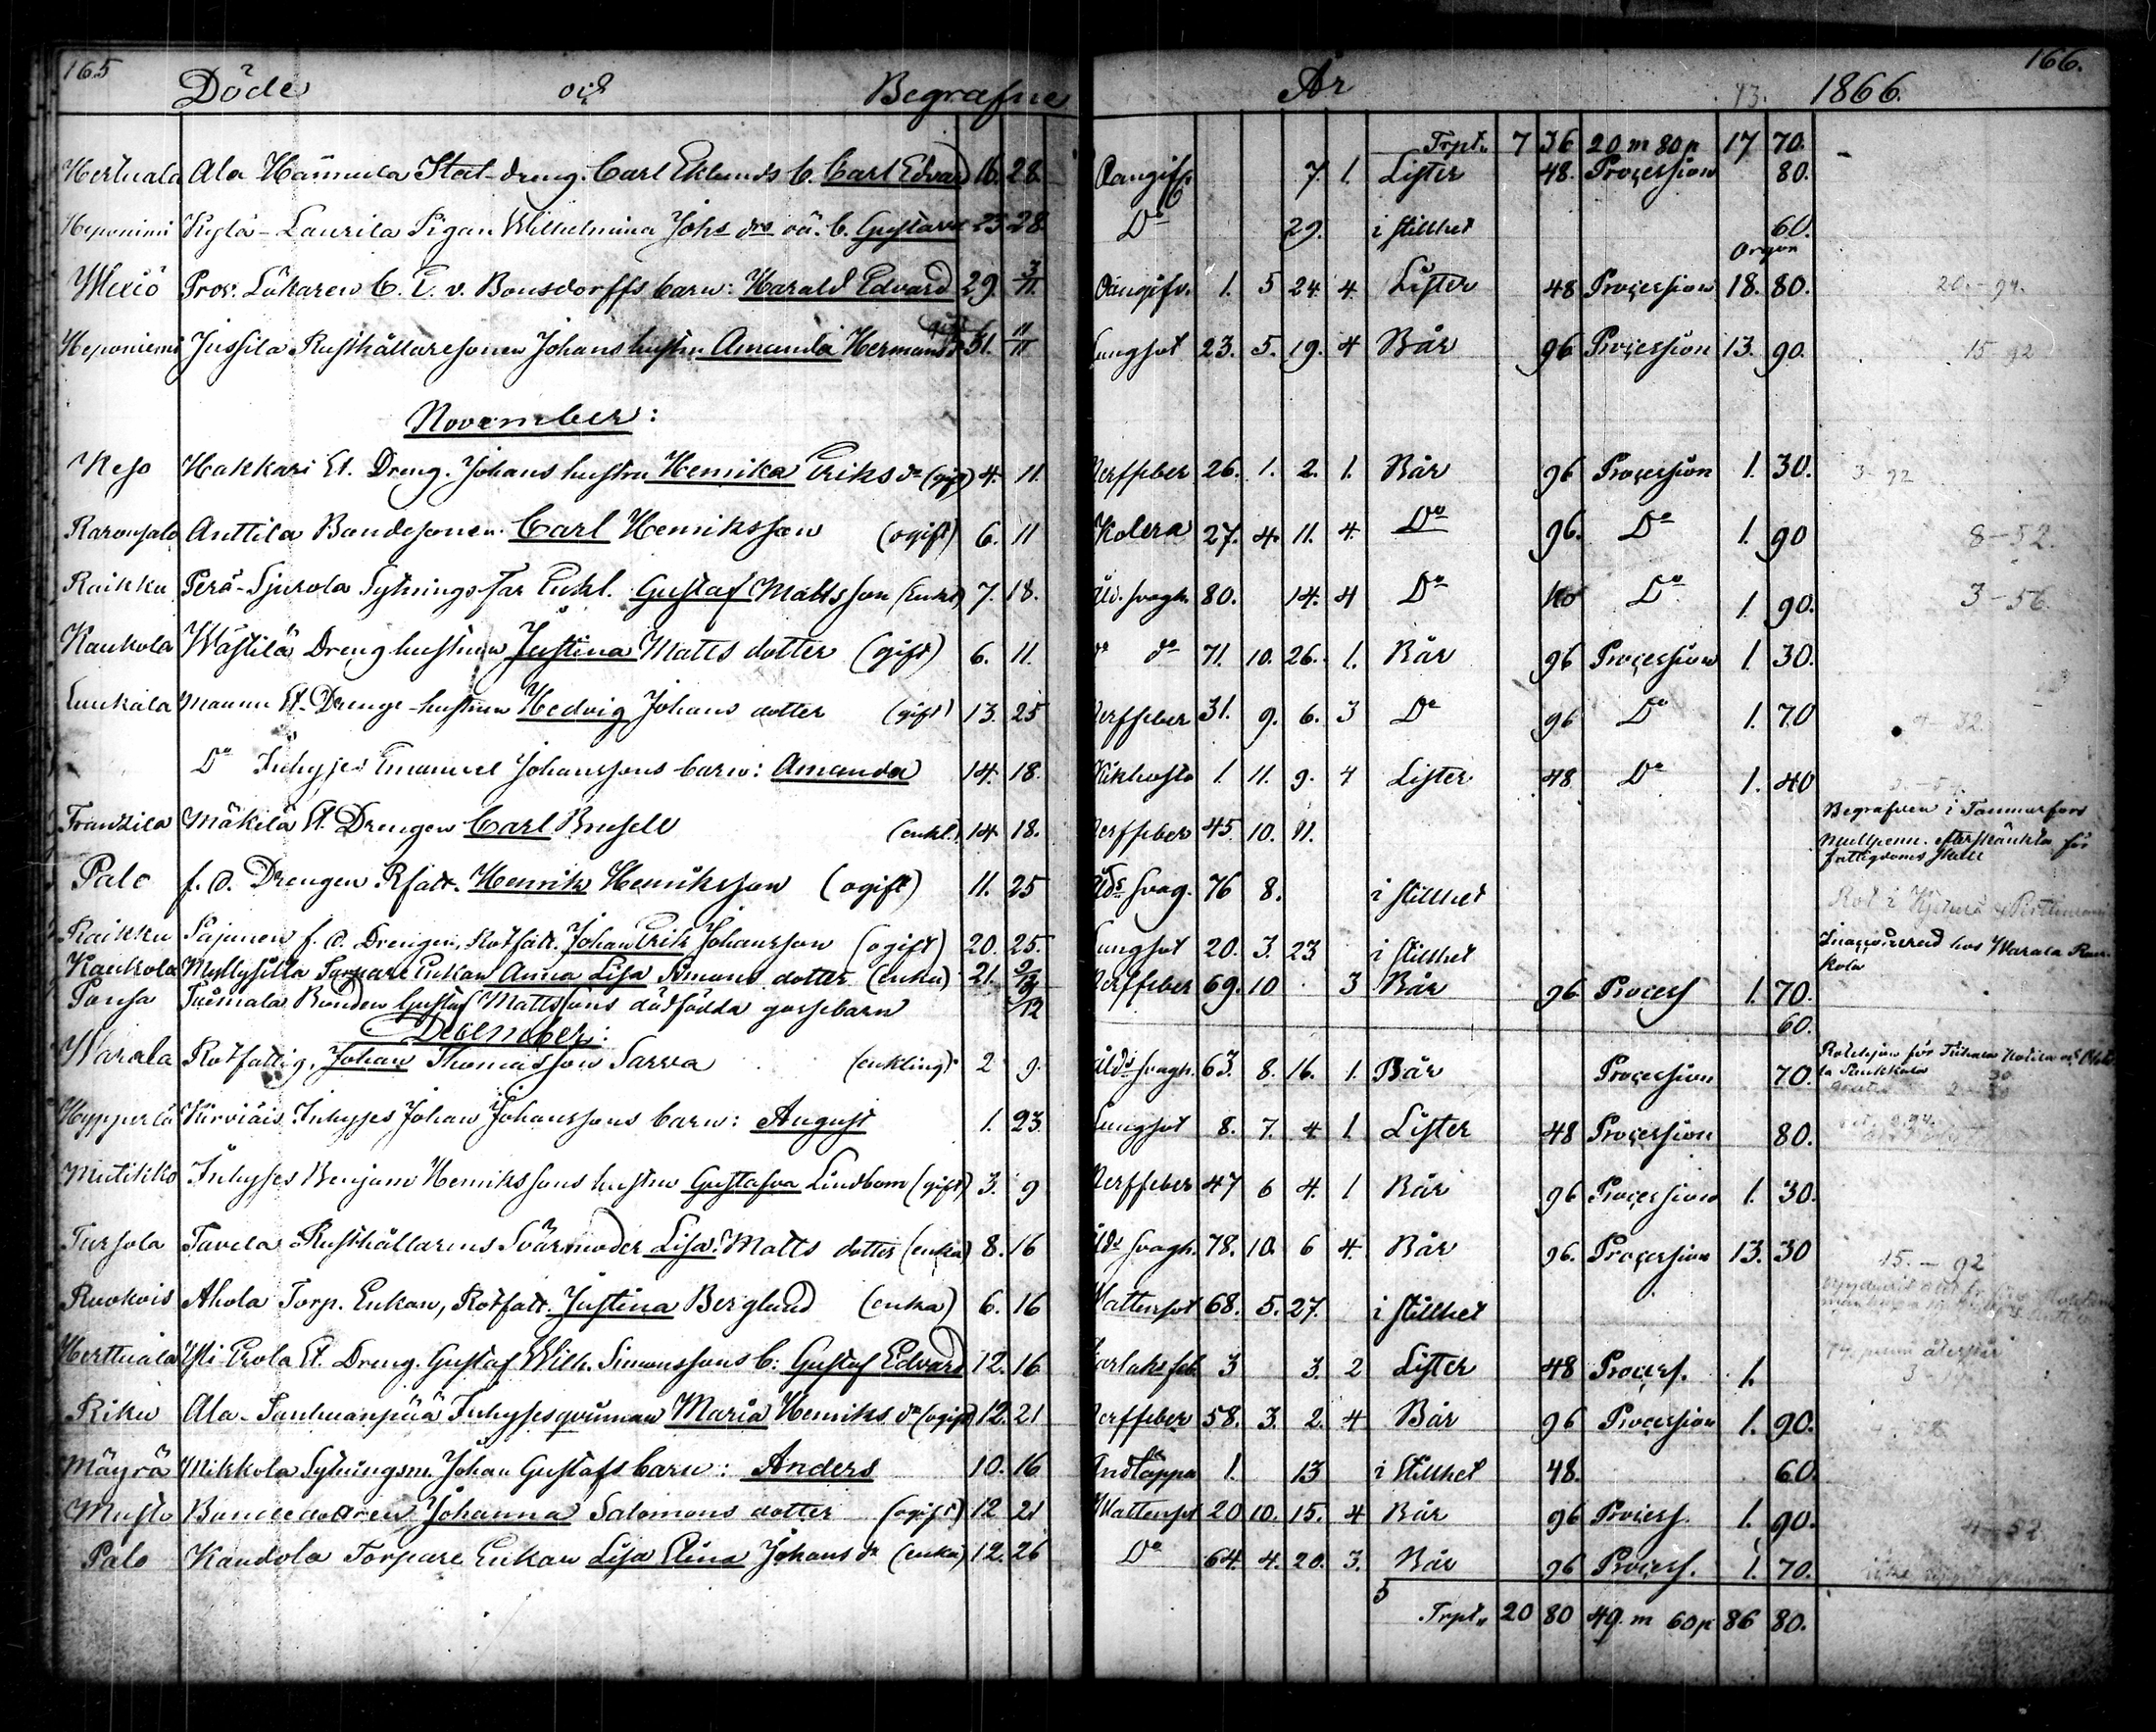 165 Döde och Begrafne År 1866. 166.
Trpt. 7 36 20 m 80 p 17 70.
Hertuala Ala Hannula Stat-dreng. Carl Eklunds b. Carl Edvard 16. 28. Oangifv. 7. 1. Lister 48. Procession 80.
Heponimi Kylä-Laurila Pigan Wilhelmina Johs dr oä. b. Gustava 23 28. Do 29. i stillhet 60.
Orgon
Prov. Läkaren C. E. v. Bonsdorffs barn: Harald Edvard 29. 3/11 Oangifv. 1. 5 24. 4. Lister 48 Procession 18. 80. 20.-94.
Heponiemi Jussila Rusthållaresonen Johans hustru Amanda Hermans dr gift 31. 11/11 Lungsot 23. 5. 19. 4 Bår 96 Procession 13. 90. 15-92
November:
Keso Hakkari St. Dreng. Johans hustru Henrika Eriks dr (gift) 4. 11. Nerffeber 26. 1. 2. 1. Bår 96 Procession 1. 30. 3-92
Raronsalo Anttila Bondesonen Carl Henriksson (ogift) 6. 11 Kolera 27. 4. 11. 4. Do 96. Do 1. 90 8-52.
Raikku Perä-Sjurola Sytningsfar Enkl. Gustaf Mattsson (Enkl) 7. 18. Åld. svagh. 80. 14. 4 Do Do 1. 90. 3-56.
Kaukola Wästilä Dreng hustrun Justina Matts dotter (gift) 6. 11. Do do 71. 10. 26. 1. Bår 96 Procession 1. 30.
Maunu St. Drenge-hustrun Hedvig Johans dotter (gift) 13. 25 Nerffeber 31. 9. 6. 3 Do 96 Do 1. 70 4-32.
Do Inhyses Emanuel Johanssons barn: Amanda 14. 18. Kikhosta 1 11. 9. 4 Lister 48 Do 1. 40
Franzila Mäkilä St. Drengen Carl Brusell (enkl.) 14 18. Nerffeber 45. 10. 11. Begrafven i Tammerfors
mullpenn. efterskänkta för
fattigdoms skull
Palo f. d. Drengen Rfatt. Henrik Henriksson (ogift) 11. 25 Åldr svag. 76 8. i stillhet
Raikku Sajunen f. d. Drengen, Rotfatt. Johan Erik Johansson (ogift) 20. 25. Lungsot 20. 3. 23 i stillhet Inaccorderad hos Warala Kau-
kola
Kaukola Myllysilta Torpare Enkan Anna Lisa Simons dotter (enka) 21. Nerffeber 69. 10 . 3 Bår 96 Process 1. 70.
Tuomala Bonden Gustaf Mattssons dödfödda gossebarn 60.
December:
Warala Rotfattig, Johan Thomasson Sarra (enkling) 2 9. Ålds svagh. 63. 8. 16. 1. Bår Procession 70.
Hyppurlä Inhyses Johan Johanssons barn: August 1. 23. Lungsot 8. 7. 4 1. Lister 48 Procession 80.
Mutikko Inhyses Benjam Henrikssons hustru Gustafva Lindbom (gift) 3. 9 Nerffeber 47 6 4. 1 Bår 96 Procession 1. 30.
Tursola Tavela Rusthållarens Svärmoder Lisa Matts dotter (enka) 8. 16 Ålds svagh. 78. 10. 6 4. Bår 96. Procession 13. 30 15.-92
Ruokois Ahola Torp. Enkan, Rotfatt. Justina Berglund (enka) 6. 16 Wattensot 68. 5. 27. i stillhet
Herttuala Yli Erola St. Dreng. Gustaf Wilh. Simonssons b: Gustaf Edvard 12. 16 Skarlaks feb 3 3. 2 Lister 48 Process. 1.
Riku Ala-Tanhuanpää Inhysesqvinnan Maria Henriks dr (ogift) 12. 21 Nerffeber 58. 3. 2. 4 Bår 96 Procession 1. 90.
Mäyrä Mikkola Sytningsm. Johan Gustafs barn: Anders 10. 16 Andtäppa 1. 13 i stillhet 48. 60.
Musto Bondedottren Johanna Salomons dotter (ogift) 12 21 Wattensot 20 10. 15. 4 Bår 96 Process. 1. 90. 4-52
Palo Kandola Torpare Enkan Lisa Elina Johans dr (enka) 12. 26 Do 64. 4. 20. 3. Bår 96 Process. 1. 70.
5
Trpt. 20 80 49. m 60 p 86 80.